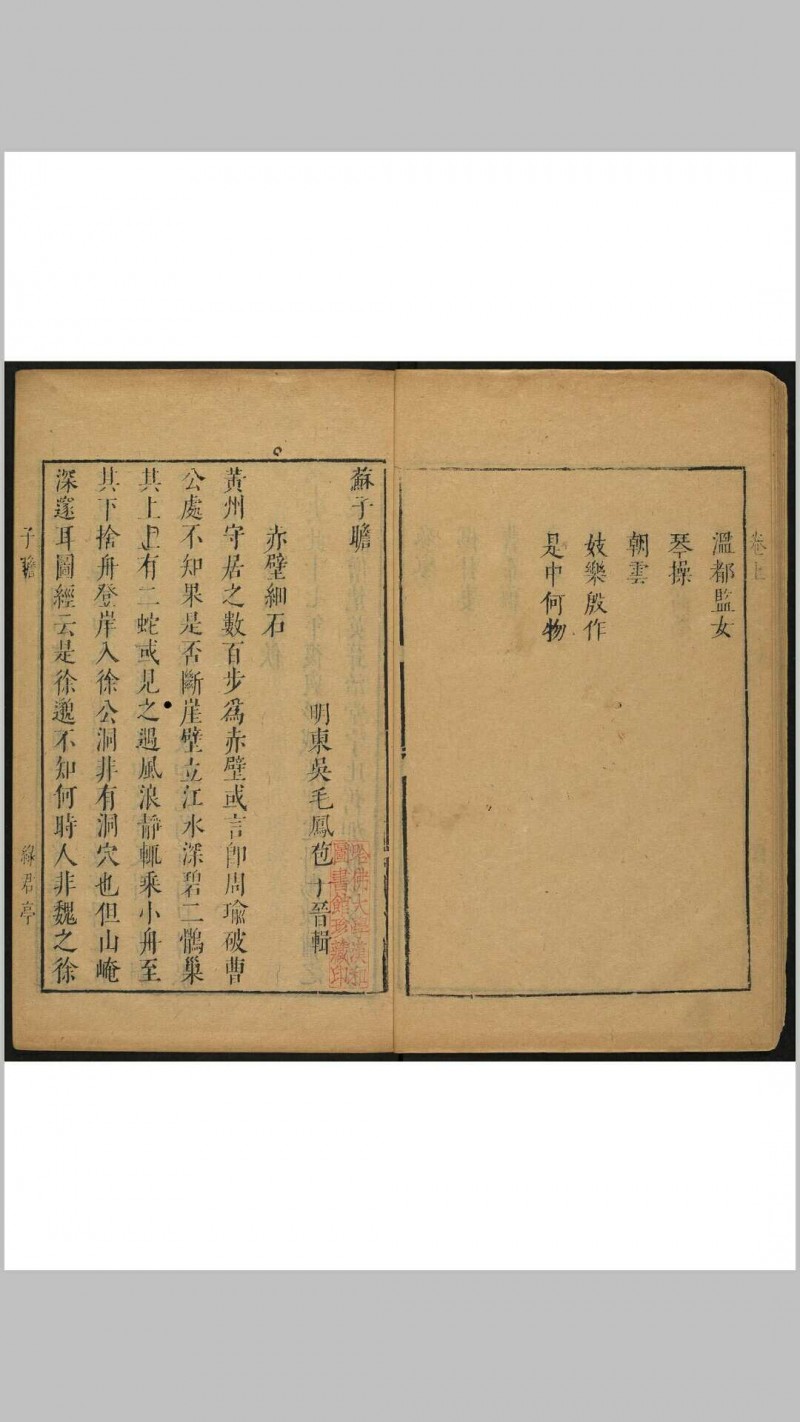 卷上
溫都監女
琴操
朝雲
妓樂殷作
是中何物
蘇子瞻
明東吳毛鳳苞十晉輯
赤壁細石
黃州守居之數百步爲赤壁或言卽周瑜破曹
公處不知果是否斷崖壁立江水深碧二鶻巢
其上上有二蛇或見之遇風浪靜輒乘小舟至
其下捨舟登岸入徐公洞非有洞穴也但山崦
深邃耳圖經云是徐邈不知何時人非魏之徐
子瞻
綠君亭
哈佛大學漢和
圖書館珍藏印